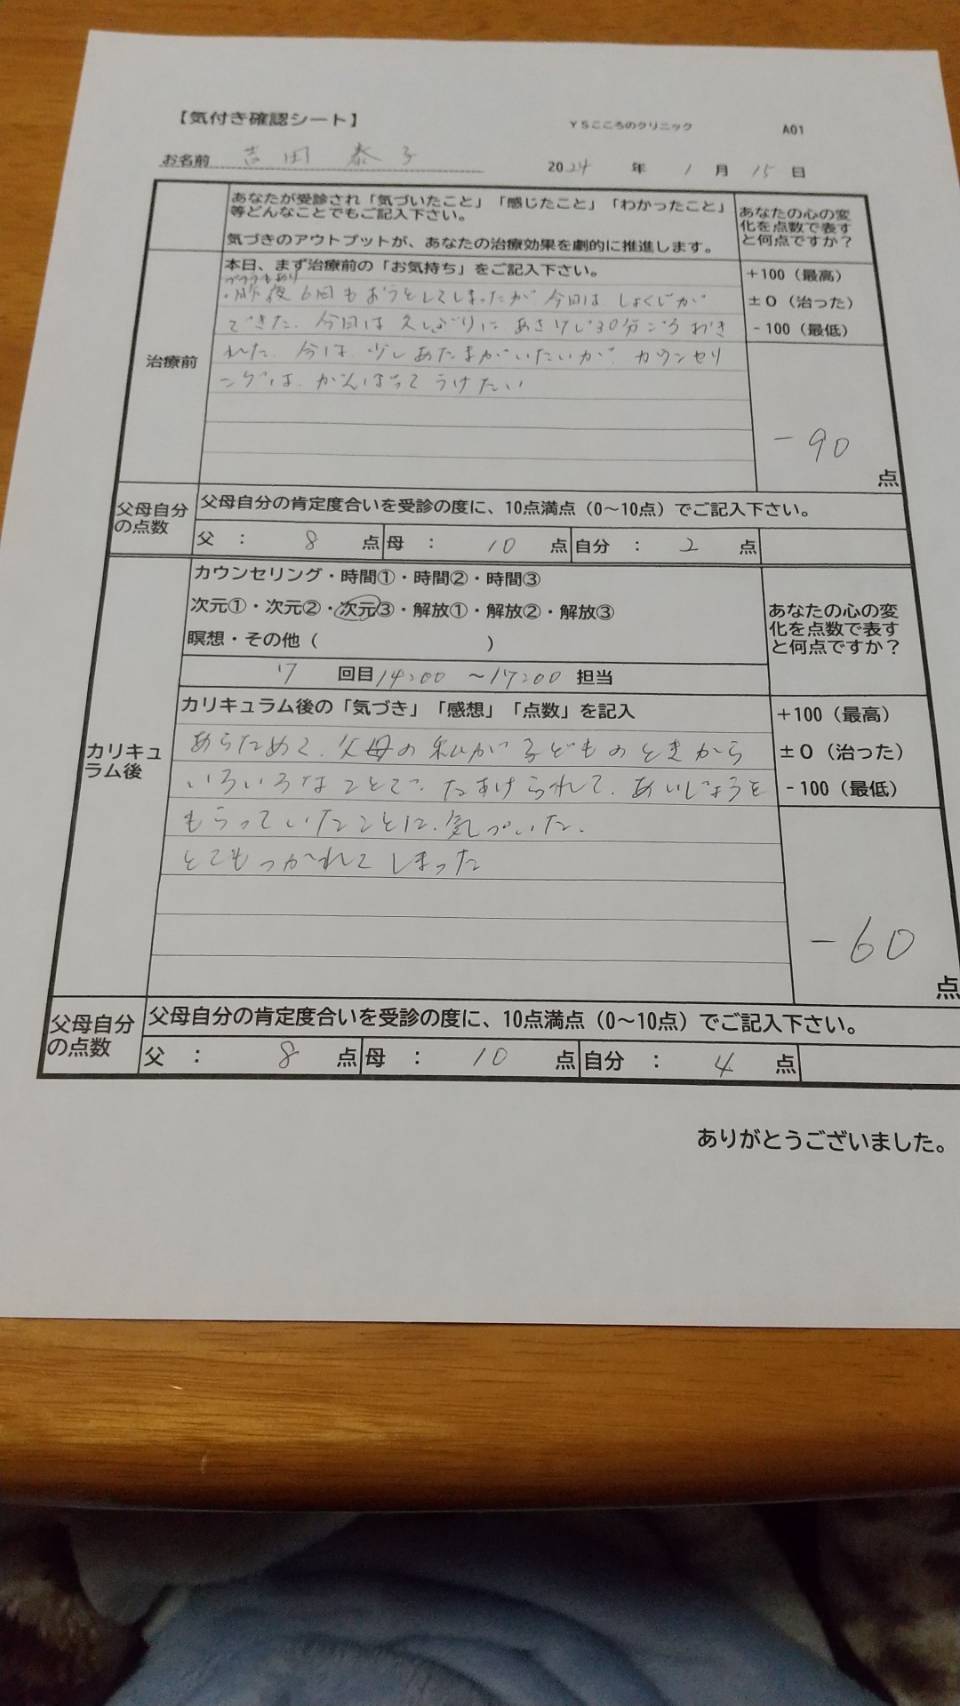 【気付き確認シート】 YSこころのクリニック A01
お名前 吉田 泰子 2024年 1月 15日
あなたが受診され「気づいたこと」「感じたこと」「わかったこと」
等どんなことでもご記入下さい。
気づきのアウトプットが、あなたの治療効果を劇的に推進します。
あなたの心の変
化を点数で表す
と何点ですか？
治療前
本日、まず治療前の「お気持ち」をご記入下さい。
・昨夜6回もおうとしてしまったが 今日は しょくじが
できた. 今日は 久しぶりに あさ 30分ごろ おき
れた. 今は. 少しあたまがいたいが. カウンセリ
ングは. がんばって うけたい
+100（最高）
±0（治った）
-100（最低）
-90
点
父母自分
の点数
父母自分の肯定度合いを受診の度に、10点満点（0～10点）でご記入下さい。
父 ： 8 点 母 ： 10 点 自分 ： 2 点
カウンセリング・時間①・時間②・時間③
次元①・次元②・次元③・解放①・解放②・解放③
瞑想・その他（ ）
17 回目 14:00 ～17:00 担当
あなたの心の変
化を点数で表す
と何点ですか？
カリキュ
ラム後
カリキュラム後の「気づき」「感想」「点数」を記入
あらためて. 父母の私が子どものときから
いろいろなことで. たすけられて. あいじょうを
もらっていたことに. 気づいた.
とてもつかれてしまった
+100（最高）
±0（治った）
-100（最低）
-60
点
父母自分
の点数
父母自分の肯定度合いを受診の度に、10点満点（0～10点）でご記入下さい。
父 ： 8 点 母 ： 10 点 自分 ： 4 点
ありがとうございました。